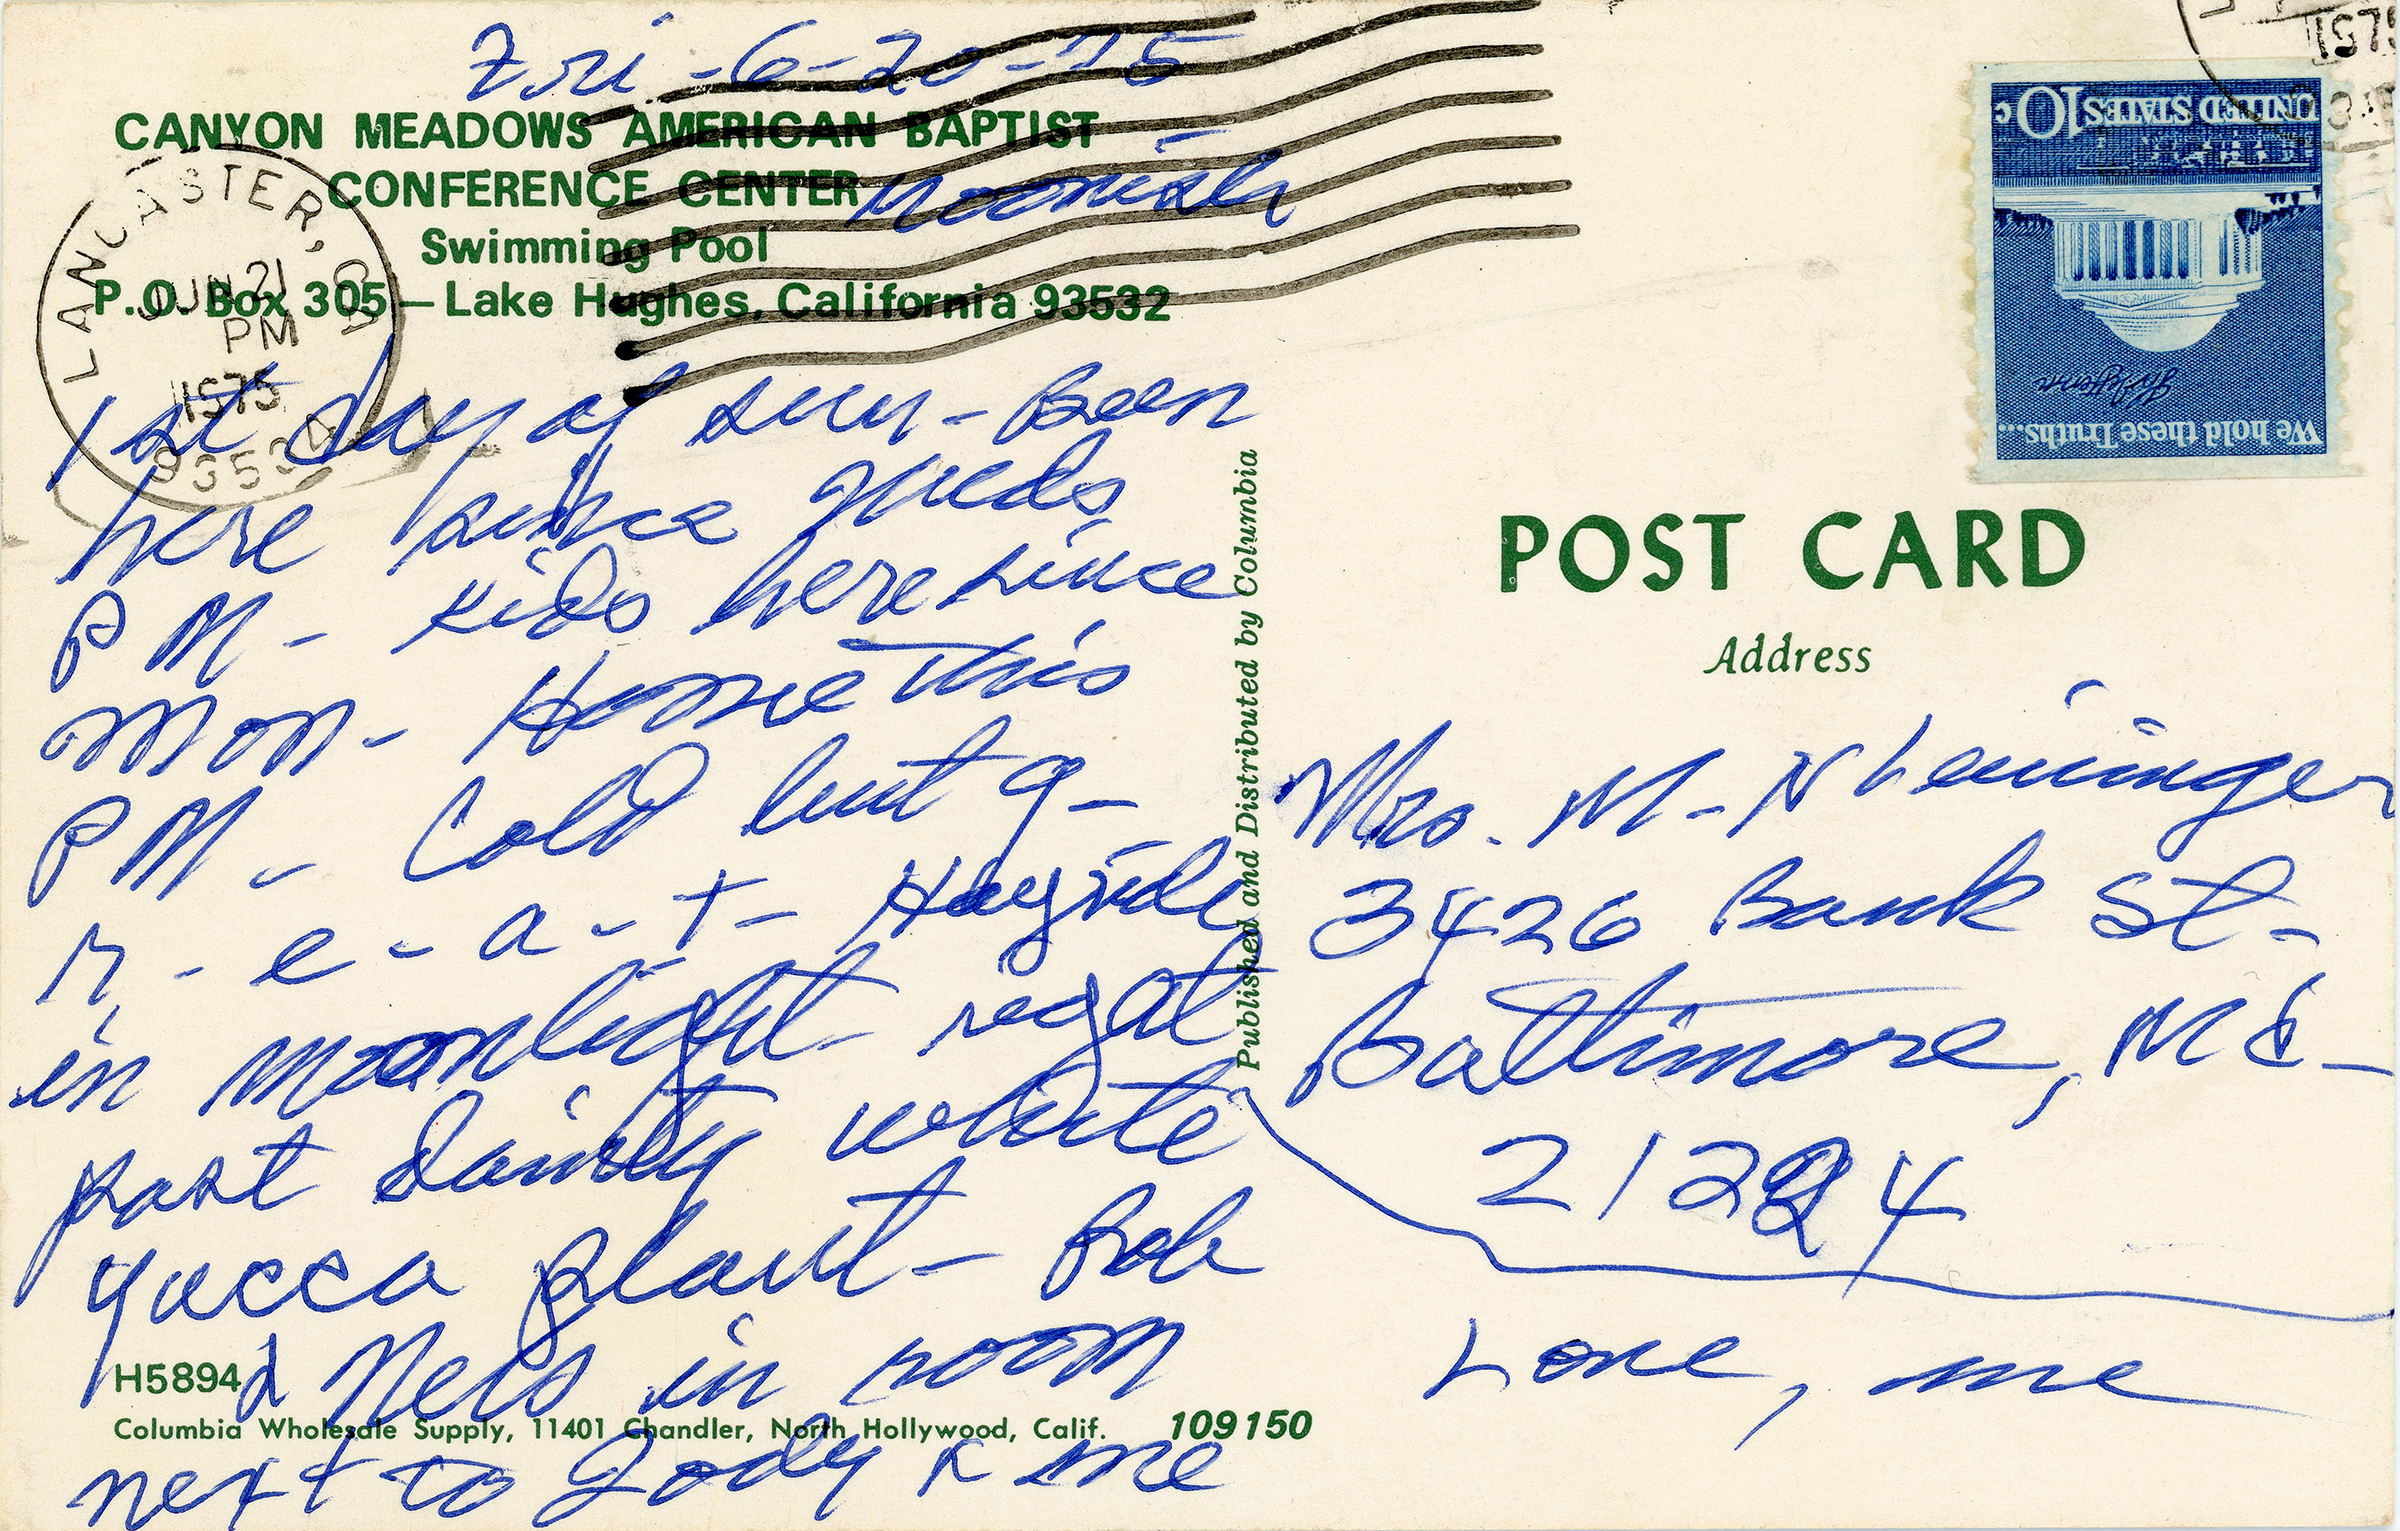 Fri - 6-20-75
CANYON MEADOWS AMERICAN BAPTIST
CONFERENCE CENTER
noonish
Swimming Pool
P.O. Box 305 — Lake Hughes, California 93532
LANCASTER, CA
JUN 21
PM
1975
93534
1st day of sun - Been
here since Weds
PM - Kids here since
Mon - Home this
PM - Cold but g-
r - e - a - t - Hayride
in moonlight right
past dainty white
yucca plant - Bob
& Nels in room
next to Jody & me
H5894
Columbia Wholesale Supply, 11401 Chandler, North Hollywood, Calif.
109150
Published and Distributed by Columbia
1975
UNITED STATES 10c
We hold these Truths...
POST CARD
Address
Mrs. M. N Leininger
3426 Bank St -
Baltimore, Md -
21224
Love, me